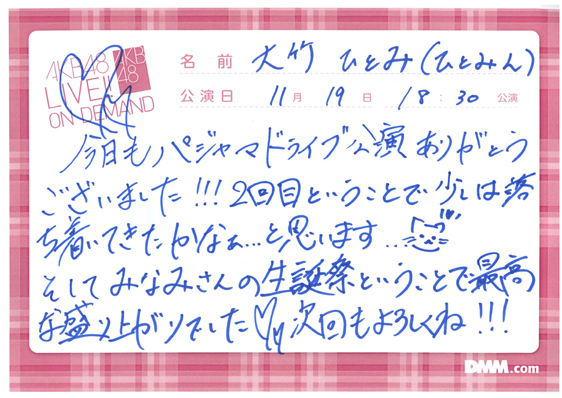 AKB48
LIVE!!
ON DEMAND
AKB
48
名前 大竹 ひとみ(ひとみん)
公演日 11月 19日 18:30 公演
今日もパジャマドライブ公演ありがとう
ございました!!!2回目ということで少しは落
ち着いてきたかなぁ...と思います...
そしてみなみさんの生誕祭ということで最高
な盛り上がりでした 次回もよろしくね!!!
DMM.com